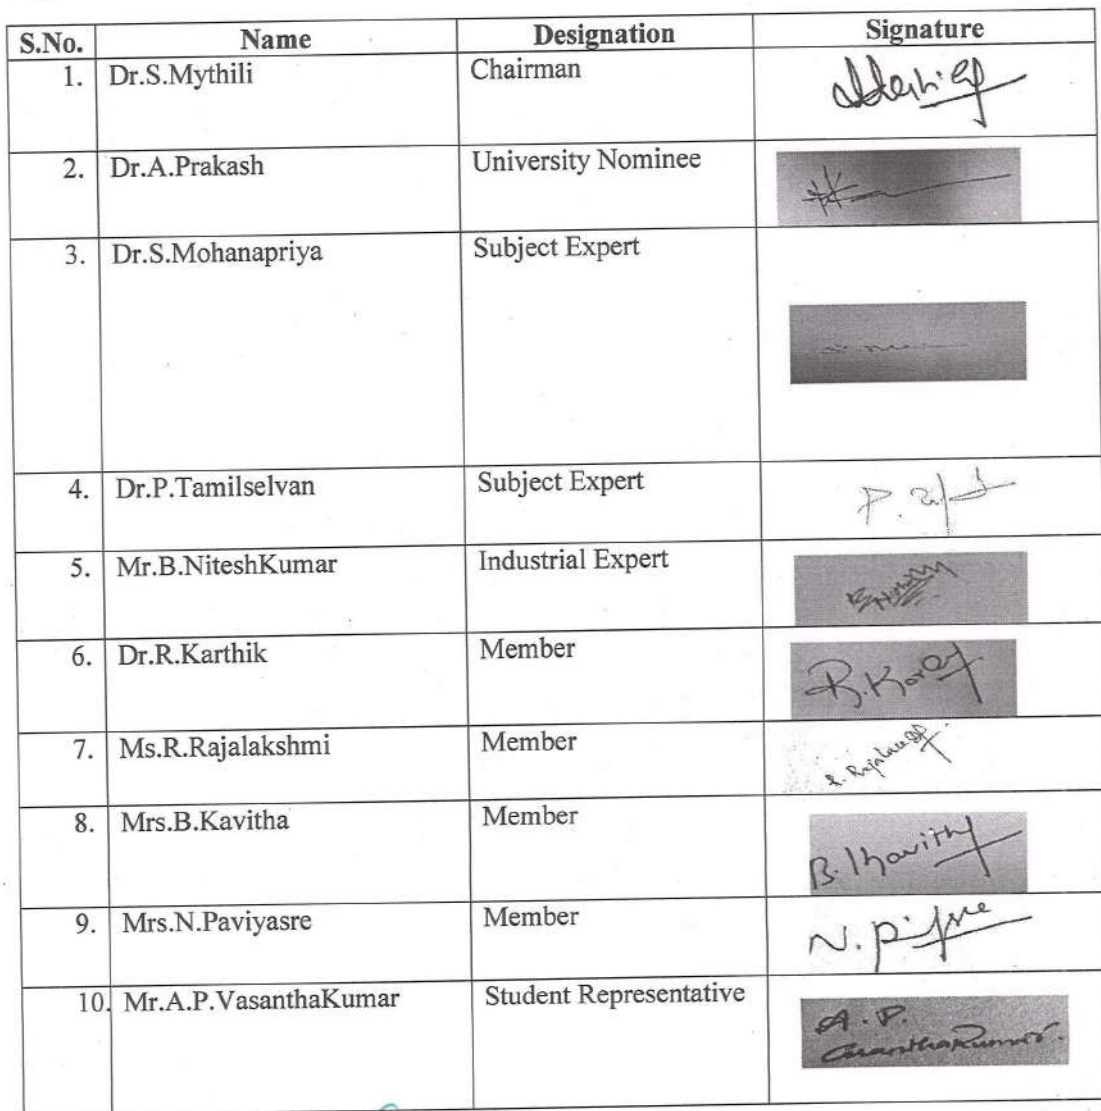 S.No. Name Designation Signature
1. Dr.S.Mythili Chairman
2. Dr.A.Prakash University Nominee
3. Dr.S.Mohanapriya Subject Expert
4. Dr.P.Tamilselvan Subject Expert P.
5. Mr.B.NiteshKumar Industrial Expert
6. Dr.R.Karthik Member R.
7. Ms.R.Rajalakshmi Member
8. Mrs.B.Kavitha Member B. Kavitha
9. Mrs.N.Paviyasre Member N.
10. Mr.A.P.VasanthaKumar Student Representative A.P.
VasanthaKumar.